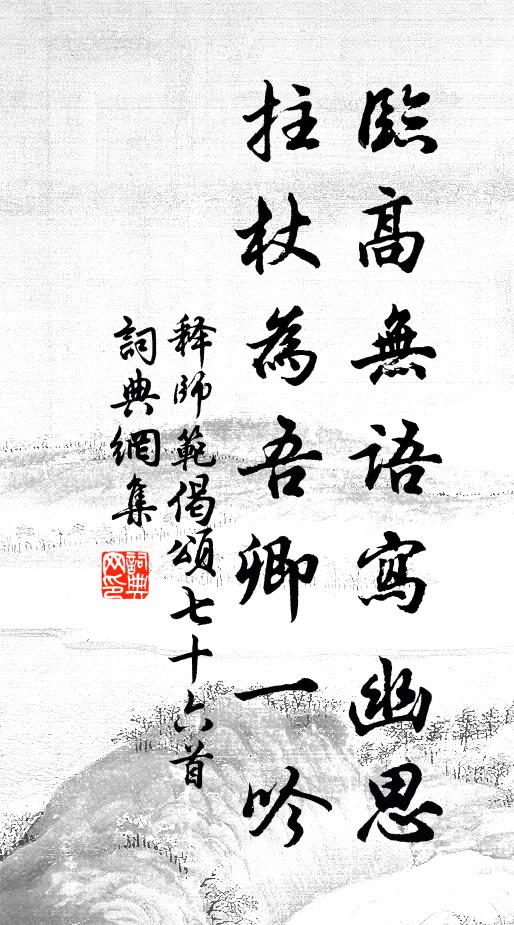 臨高無語寫幽思
拄杖為吾卿一吟
释師範偈頌七十六首
詞典網集
詞典
网印